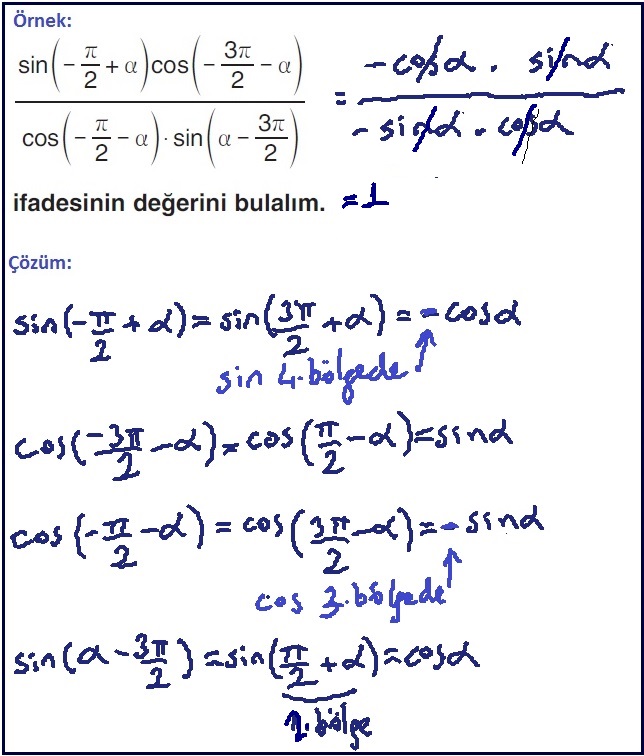 Örnek:
sin(-π/2 + α)cos(-3π/2 - α) / cos(-π/2 - α)·sin(α - 3π/2) = -cosα . sinα / -sinα . cosα
ifadesinin değerini bulalım. =1
Çözüm:
sin(-π/2 + α) = sin(3π/2 + α) = -cosα
sin 4.bölgede
cos(-3π/2 - α) = cos(π/2 - α) = sinα
cos(-π/2 - α) = cos(3π/2 - α) = - sinα
cos 3.bölgede
sin(α - 3π/2) = sin(π/2 + α) = cosα
2.bölge